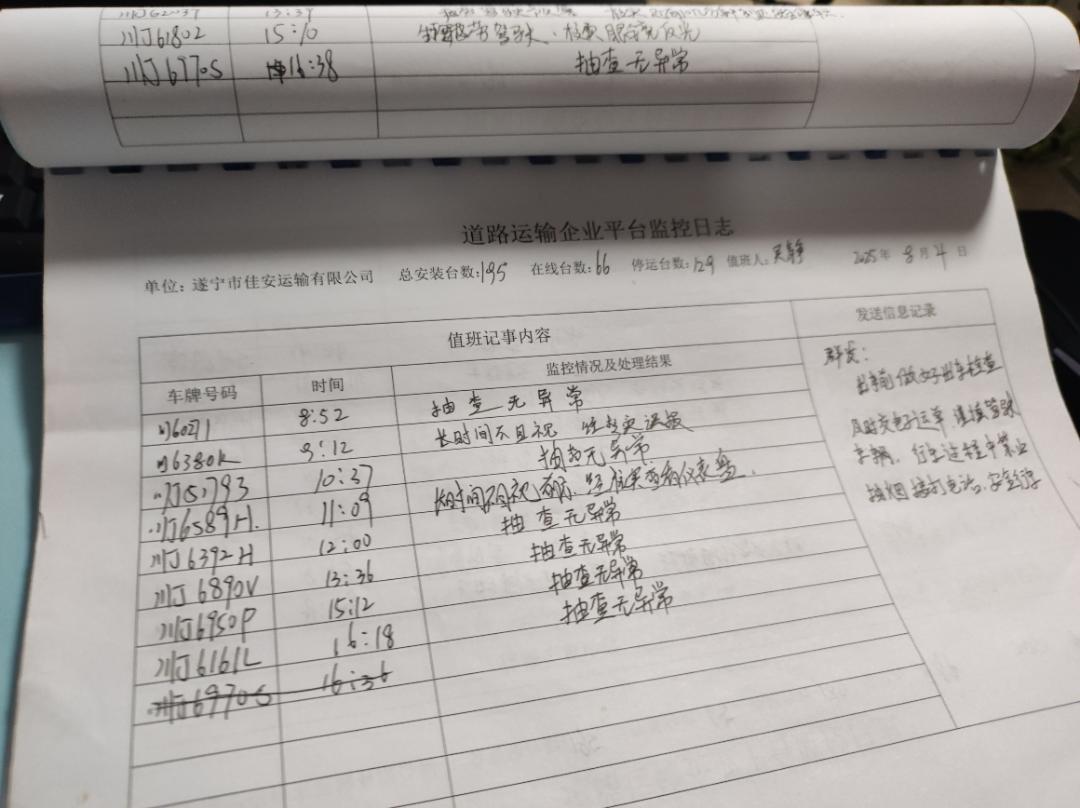 川J61802 15:10
川J6770S 16:38 抽查无异常
道路运输企业平台监控日志
单位：遂宁市佳安运输有限公司 总安装台数：195 在线台数：66 停运台数：129 值班人： 2025年 8月 4日
值班记事内容 发送信息记录
车牌号码 时间 监控情况及处理结果
8:52 抽查无异常
川6380K 9:12 长时间不目视
川J5793 10:37 抽查无异常
川J6589H. 11:09 长时间不目视 仪表盘.
川J6392H 12:00 抽查无异常
川J6890V 13:36 抽查无异常
川J6950P 15:12 抽查无异常
川J6161L 16:18 抽查无异常
川J6970S 16:36
群发：
出车前做好出车检查
及时交电子运单，谨慎驾驶
车辆，行车过程中禁止
抽烟 接打电话，安全行车